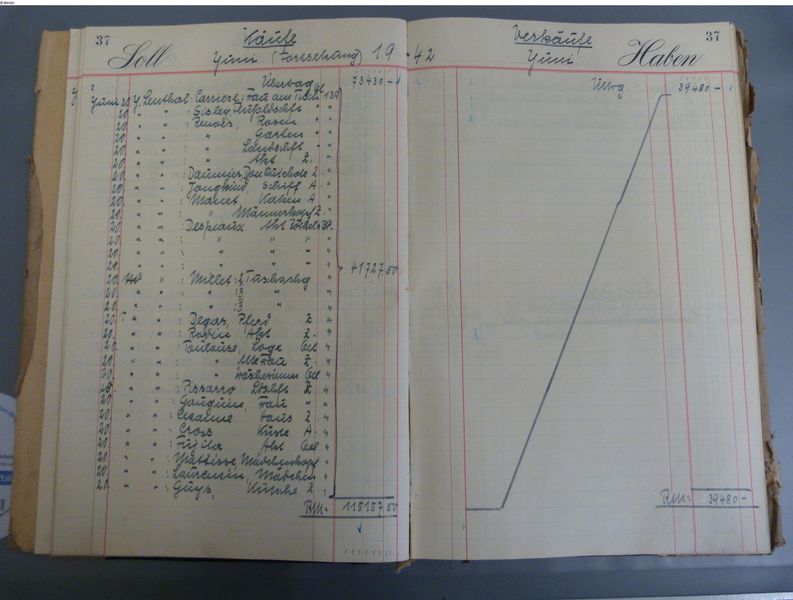 37
Käufe
Soll
Juni (Fortsetzung) 19
Übertrag
73430 -
Juni 20 Y. Lenthal: Carriere, Frau am Tisch 139
20 " " : Sisley, Flußldschft "
20 " " : Renoir, Rosen "
20 " " " Garten "
20 " " " Landschft "
20 " " " Akt Z. "
20 " " : Daumier, Don Quichote Z. "
20 " " : Jongkind, Schiff A. "
20 " " : Manet Katzen A "
20 " " " Männerkopf Z. "
20 " " : Despiaux Akt
20 " " " " "
20 " " " " "
20 " " " " " 41727.50
20 " " : Millet: 2
20 " " " :3 "
20 " " " :3 "
20 " " : Degas, Pferd Z "
20 " " : Rodin Akt Z. "
20 " " : Toulouse, Loge Oel "
20 " " " Alte Frau Z. "
20 " " " Wäscherinnen Oel "
20 " " : Pissarro Ldschft Z "
20 " " : Gauguin, Frau " "
20 " " : Cezanne Haus Z. "
20 " " : Cross Küste A. "
20 " " : Akt Oel "
20 " " : Mattisse Mädchenkopf "
20 " " : Laurencin, Mädchen "
20 " " : Guys, Kutsche Z. "
RM. 115157 50
37
Verkäufe
42 Juni Haben
Übtrg 39480 -
RM. 39480 -